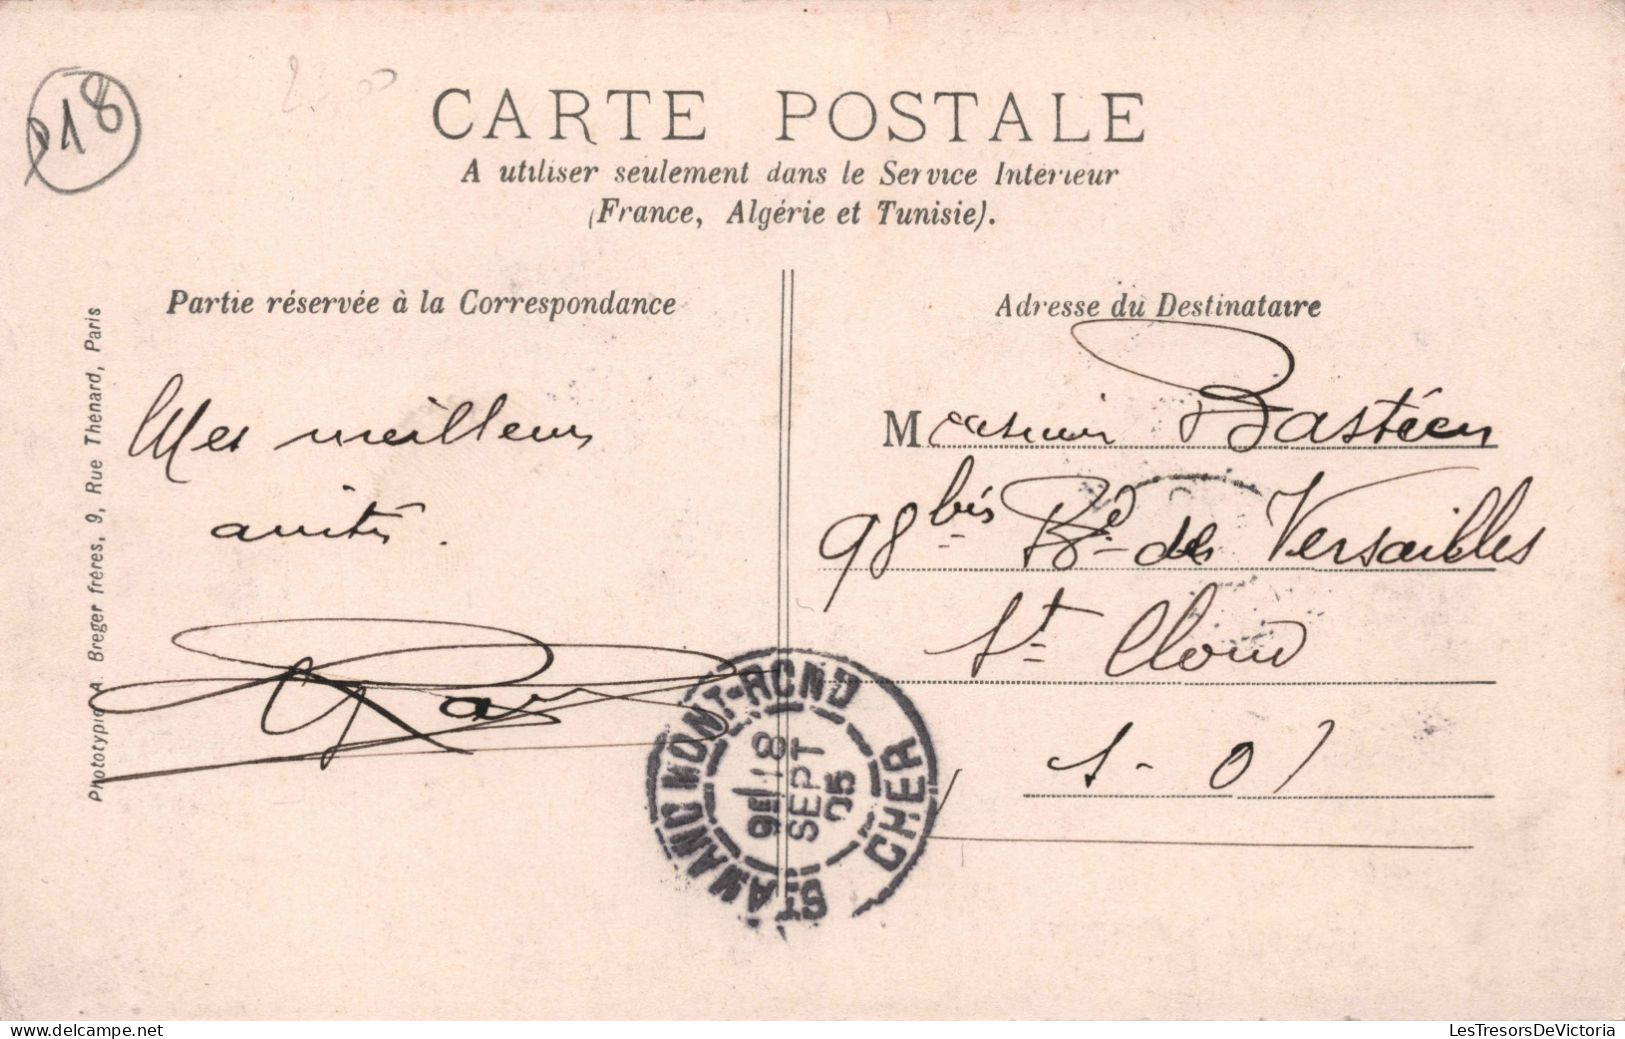 218
CARTE POSTALE
A utiliser seulement dans le Service Intérieur
(France, Algérie et Tunisie).
Partie réservée à la Correspondance
Adresse du Destinataire
Mes meilleurs
amitiés.
M Bastien
98 bis Bd de Versailles
St Cloud
S - O
ST AMAND MONT-ROND CHER
18
SEPT
05
Phototypie A. Breger frères, 9, Rue Thénard, Paris
LesTresorsDeVictoria
delcampe.net